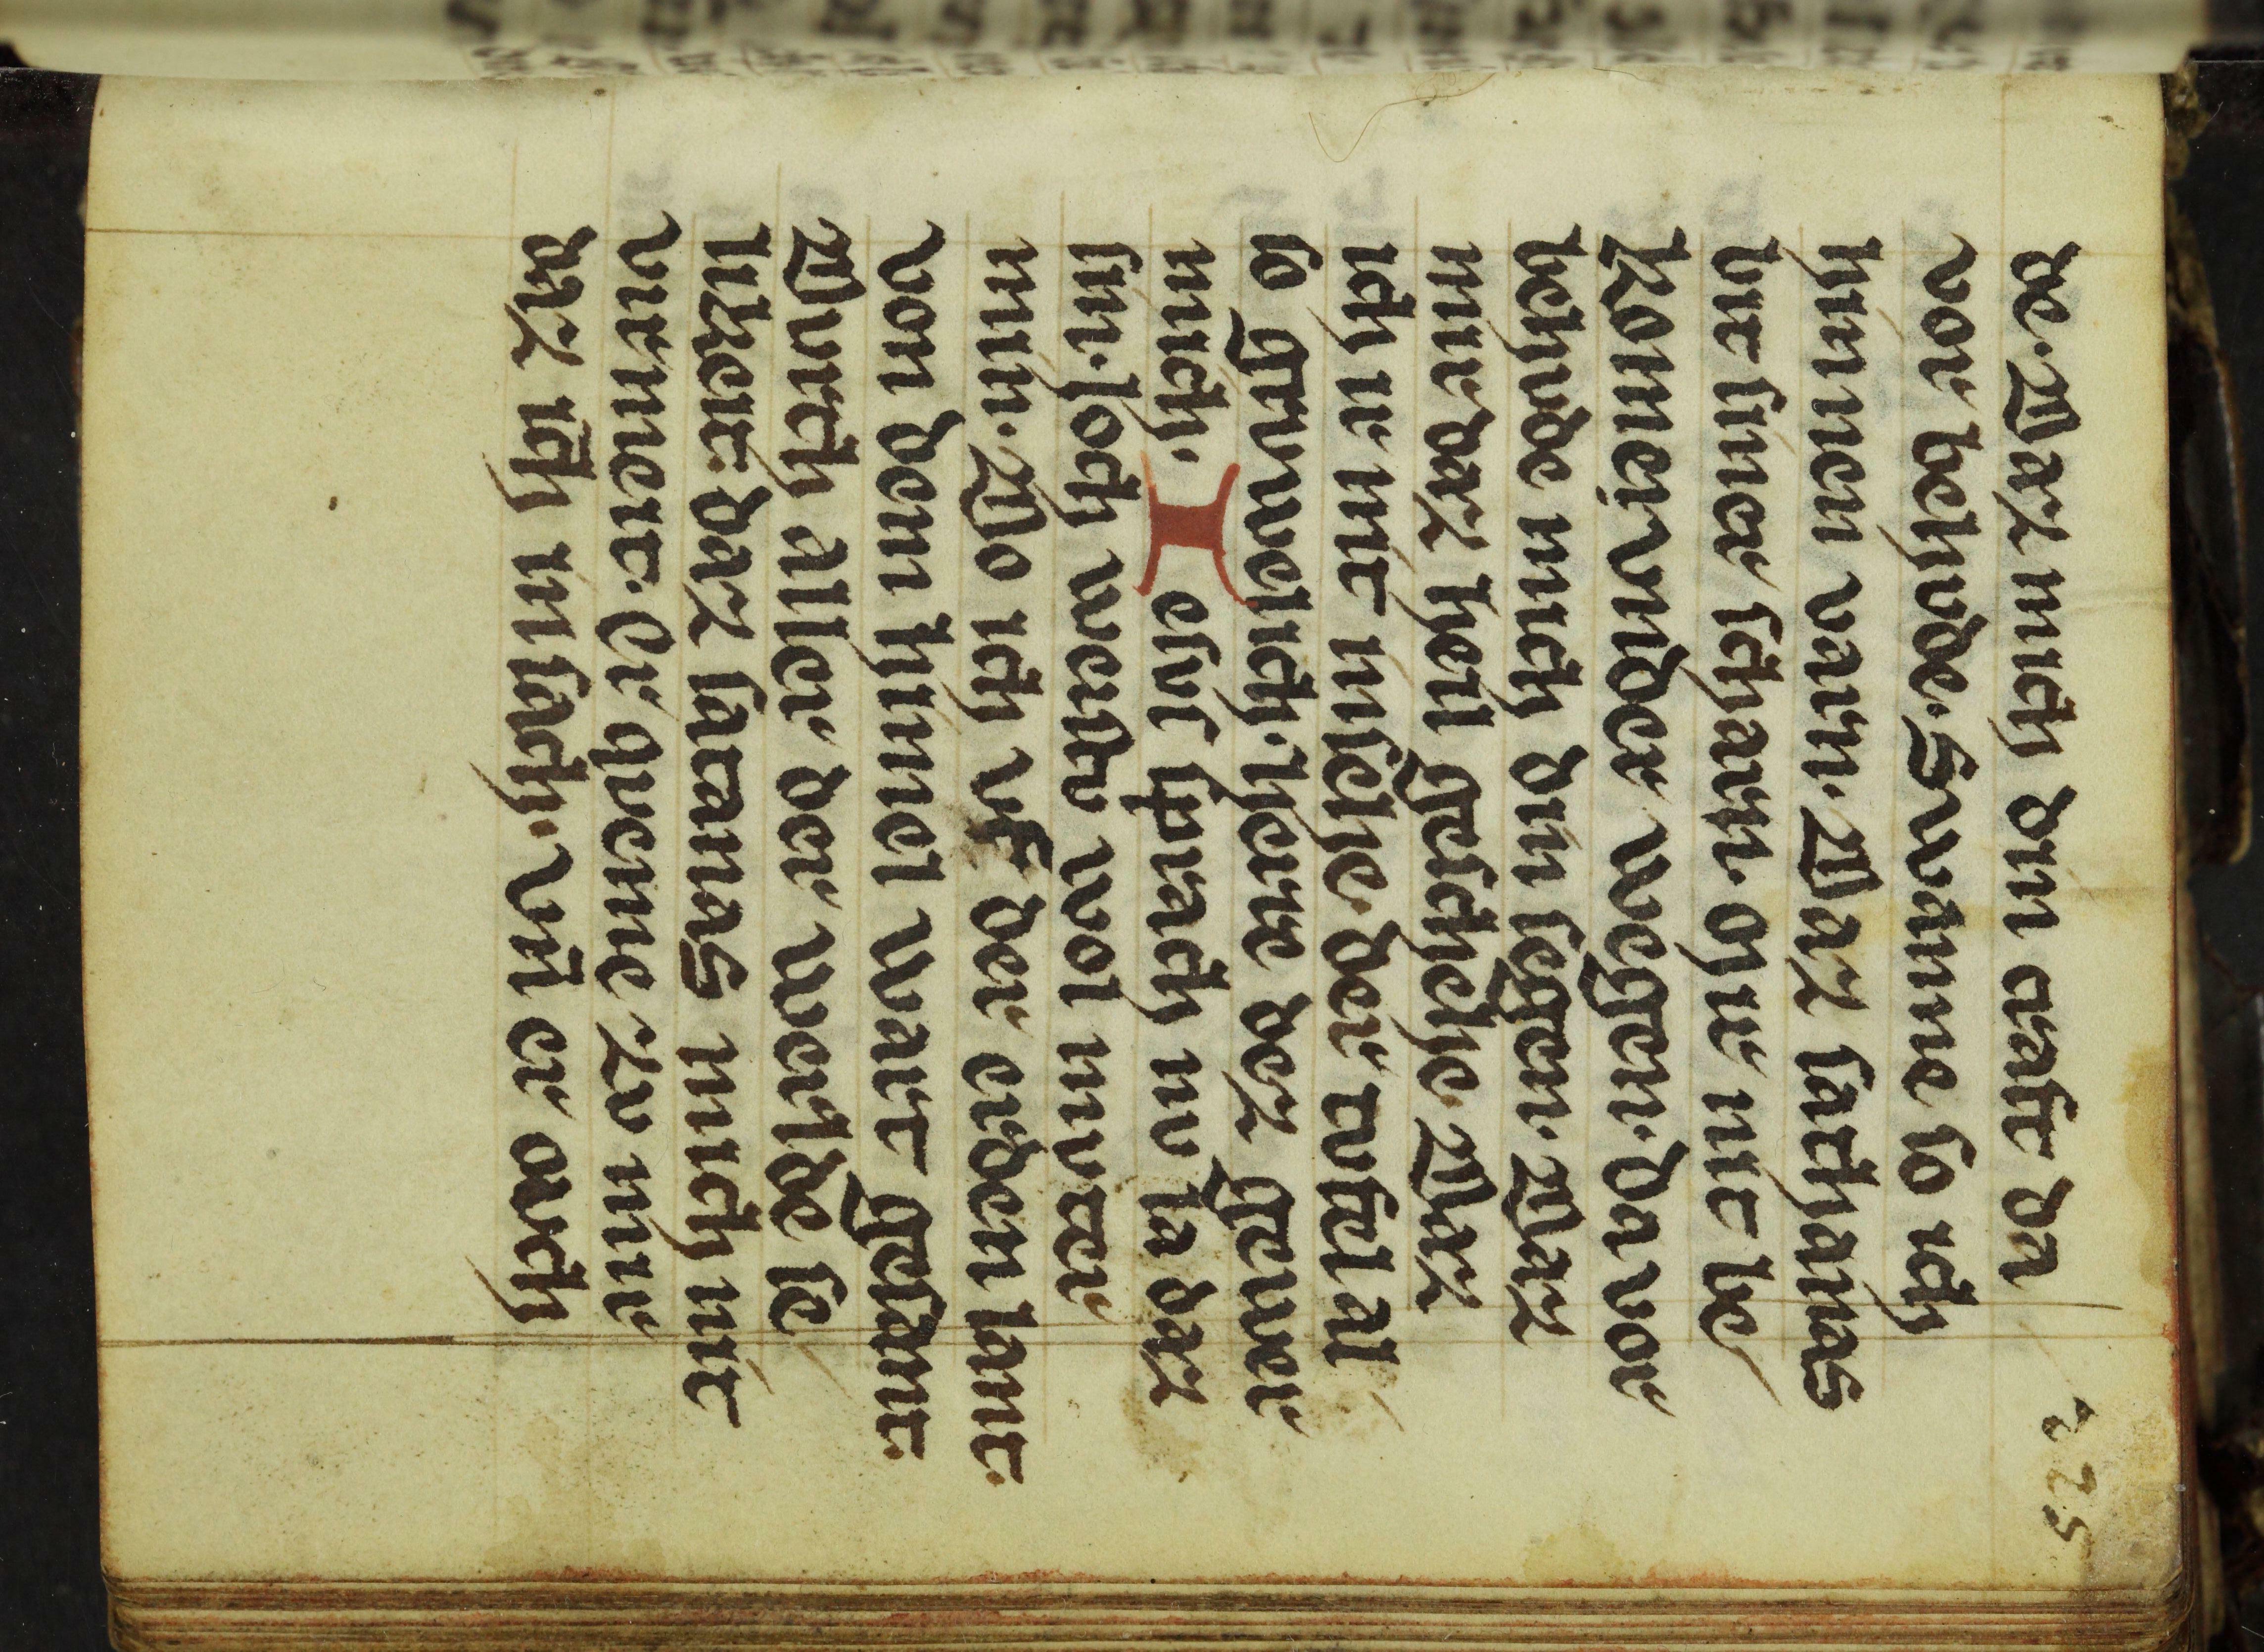 225
de. Daz mich din craft da
vor behvde. Swanne so ich
hinnen varn. Daz sathanas
bit siner scharn. ohir mit be
komer. vnder wegen. da vor
behvde mich din segen. Daz
mir daz heil geschehe. Daz
ich ir nit nisehe. der tufel al
so gruwelich. here dez gewer
mich. Iesus sprach nv la daz
sin. Ioch weistv wol mvter
min. Do ich vf der erden lant.
von dem himel wart gesant.
Dvrch aller der werlde se
likeit. daz satanas mich nit
virmeit. er queme zv mir
daz ich in sach. vñ er ovch